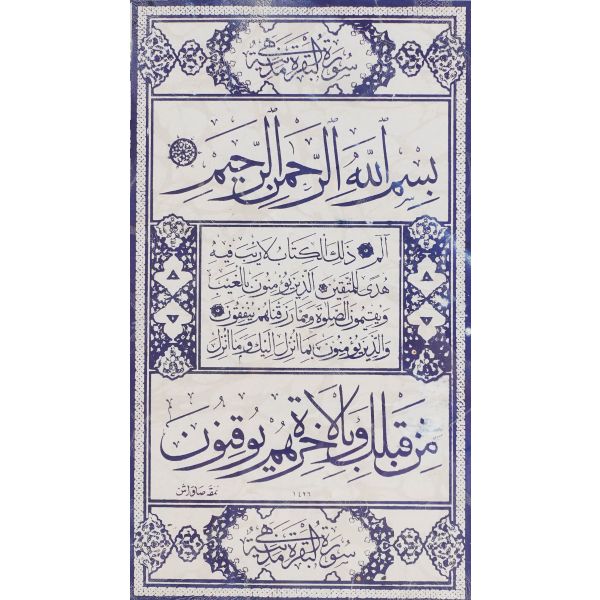 سورة البقرة مدنية وهي
بسم الله الرحمن الرحيم
الم ذلك الكتاب لا ريب فيه
هدى للمتقين الذين يؤمنون بالغيب
ويقيمون الصلوة ومما رزقناهم ينفقون
والذين يؤمنون بما انزل اليك وما انزل
من قبلك وبالاخرة هم يوقنون
١٤٢٦
سورة البقرة مدنية وهي